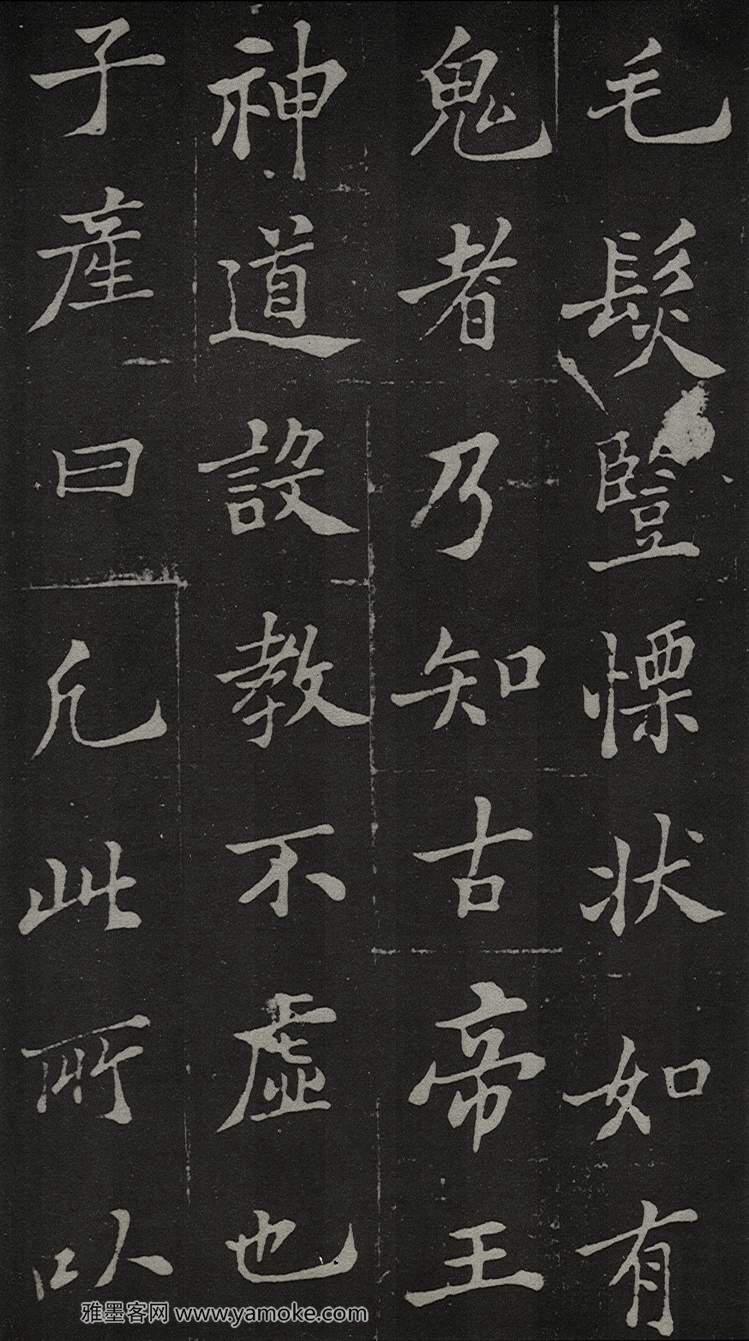 毛髮豎慄状如有
鬼者乃知古帝王
神道設教不虛也
子產曰凡此所以
雅墨客网 www.yamoke.com